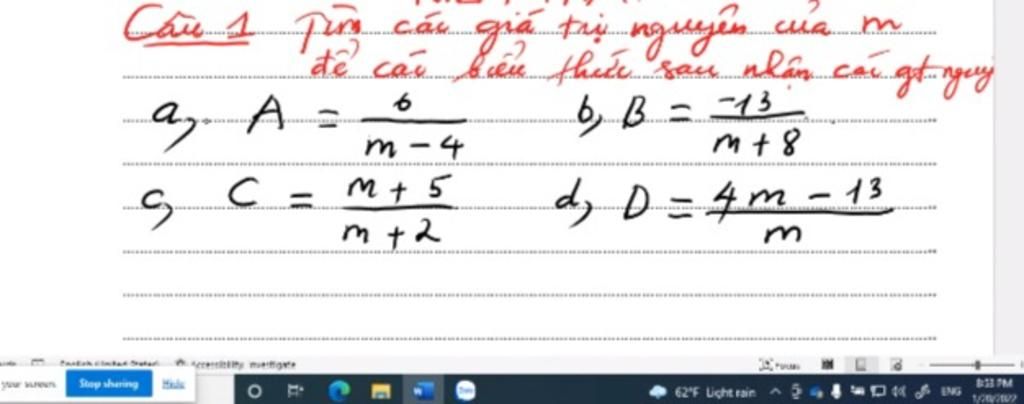 Câu 1 Tìm các giá trị nguyên của m
để các biểu thức sau nhận các gt nguy
a, A = 6 / (m - 4) b, B = -13 / (m + 8)
c, C = (m + 5) / (m + 2) d, D = (4m - 13) / m
English (United States) Accessibility: Investigate Focus
your screen. Stop sharing Hide 62°F Light rain ENG 8:33 PM
1/20/2022